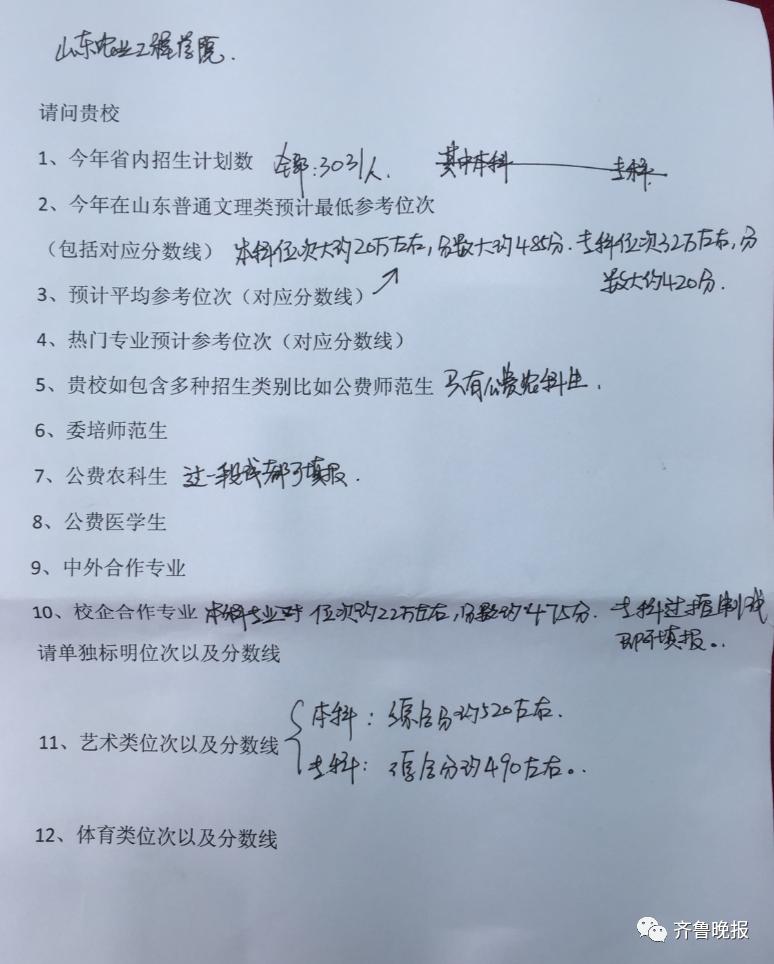 山东农业工程学院.
请问贵校
1、今年省内招生计划数 全部:3031人. 其中本科 专科.
2、今年在山东普通文理类预计最低参考位次
（包括对应分数线） 本科位次大约20万左右,分数大约485分.专科位次32万左右,分
数大约420分.
3、预计平均参考位次（对应分数线）
4、热门专业预计参考位次（对应分数线）
5、贵校如包含多种招生类别比如公费师范生 只有公费农科生.
6、委培师范生
7、公费农科生 过一段线都可填报.
8、公费医学生
9、中外合作专业
10、校企合作专业 本科专业 位次约22万左右,分数约475分. 专科过控制线
即可填报。
请单独标明位次以及分数线
11、艺术类位次以及分数线
本科：综合分约520左右.
专科：综合分约490左右。
12、体育类位次以及分数线
齐鲁晚报